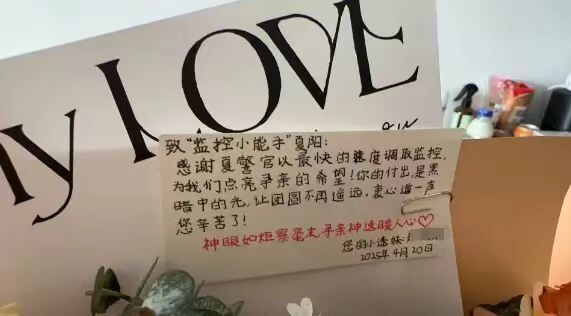 my LOVE
致“监控小能手”夏阳：
感谢夏警官以最快的速度调取监控，
为我们点亮寻亲的希望！你的付出，是黑
暗中的光，让团圆不再遥远，衷心道一声
您辛苦了！
神眼如炬察毫末寻亲神速暖人心♡
您的小迷妹：
2025年4月20日